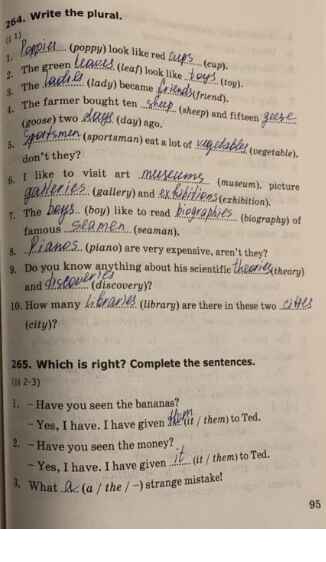 264. Write the plural.
(§ 1)
1. Poppies (poppy) look like red cups (cup).
2. The green leaves (leaf) look like toys (toy).
3. The ladies (lady) became friends (friend).
4. The farmer bought ten sheep (sheep) and fifteen geese
(goose) two days (day) ago.
5. Sportsmen (sportsman) eat a lot of vegetables (vegetable),
don't they?
6. I like to visit art museums (museum), picture
galleries (gallery) and exhibitions (exhibition).
7. The boys (boy) like to read biographies (biography) of
famous seamen (seaman).
8. Pianos (piano) are very expensive, aren't they?
9. Do you know anything about his scientific theories (theory)
and discoveries (discovery)?
10. How many libraries (library) are there in these two cities
(city)?
265. Which is right? Complete the sentences.
(§ 2-3)
1. – Have you seen the bananas?
– Yes, I have. I have given them (it / them) to Ted.
2. – Have you seen the money?
– Yes, I have. I have given it (it / them) to Ted.
3. What a (a / the / –) strange mistake!
95